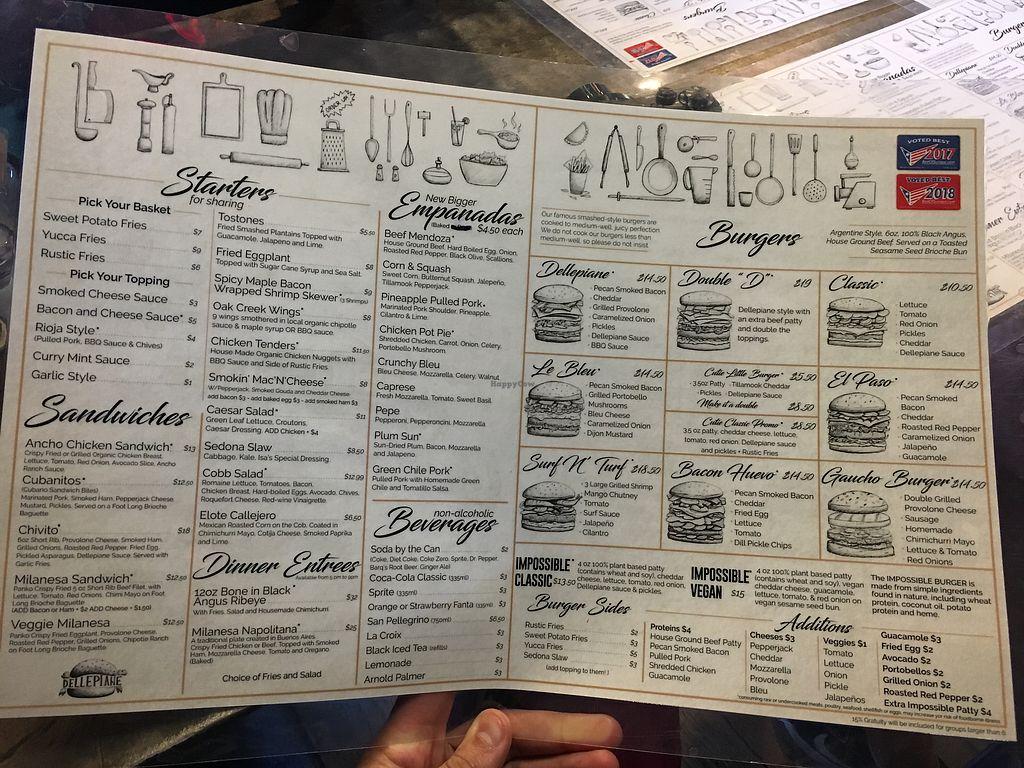 ORDER UP
Starters
for sharing
Pick Your Basket
Sweet Potato Fries $7
Yucca Fries $9
Rustic Fries $6
Pick Your Topping
Smoked Cheese Sauce $3
Bacon and Cheese Sauce* $5
Rioja Style* $4
(Pulled Pork, BBQ Sauce & Chives)
Curry Mint Sauce $2
Garlic Style $1
Sandwiches
Ancho Chicken Sandwich* $13
Crispy Fried or Grilled Organic Chicken Breast,
Lettuce, Tomato, Red Onion, Avocado Slice, Ancho
Ranch Sauce.
Cubanitos* $12.50
(Cubano Sandwich Bites)
Marinated Pork, Smoked Ham, Pepperjack Cheese
Mustard, Pickles, Served on a Foot Long Brioche
Baguette
Chivito* $18
6oz Short Rib, Provolone Cheese, Smoked Ham,
Grilled Onions, Roasted Red Pepper, Fried Egg,
Pickled Asparagus, Dellepiane Sauce, Served with
Garlic Fries.
Milanesa Sandwich* $12.50
Panko Crispy Fried 5 oz Short Rib Beef Filet, with
Lettuce, Tomato, Red Onions, Chimi Mayo on Foot
Long Brioche Baguette
(ADD Bacon or Ham + $2 ADD Cheese + $1.50)
Veggie Milanesa $12.50
Panko Crispy Fried Eggplant, Provolone Cheese,
Roasted Red Pepper, Grilled Onions, Chipotle Ranch
on Foot Long Brioche Baguette
DELLEPIANE
Tostones $5.50
Fried Smashed Plantains Topped with
Guacamole, Jalapeno and Lime.
Fried Eggplant $8
Topped with Sugar Cane Syrup and Sea Salt.
Spicy Maple Bacon $9
Wrapped Shrimp Skewer* (3 Shrimps)
Oak Creek Wings* $8
9 wings smothered in local organic chipotle
sauce & maple syrup OR BBQ sauce.
Chicken Tenders* $11.50
House Made Organic Chicken Nuggets with
BBQ Sauce and Side of Rustic Fries.
Smokin' Mac'N'Cheese* $8
W/Pepperjack, Smoked Gouda and Cheddar Cheese
add bacon $3 - add baked egg $3 - add smoked ham $3
Caesar Salad* $11
Green Leaf Lettuce, Croutons,
Caesar Dressing. ADD Chicken + $4
Sedona Slaw $8.50
Cabbage, Kale, Isa's Special Dressing.
Cobb Salad* $12.99
Romaine Lettuce, Tomatoes, Bacon,
Chicken Breast, Hard-boiled Eggs, Avocado, Chives,
Roquefort Cheese, Red-wine Vinaigrette.
Elote Callejero $6.50
Mexican Roasted Corn on the Cob, Coated in
Chimichurri Mayo, Cotija Cheese, Smoked Paprika
and Lime.
Dinner Entrees
Available from 5 pm to 9 pm
12oz Bone in Black $32
Angus Ribeye
With Fries, Salad and Housemade Chimichurri
Milanesa Napolitana* $25
A traditional plate created in Buenos Aires.
Crispy Fried Chicken or Beef, Topped with Smoked
Ham, Mozzarella Cheese, Tomato and Oregano.
(Baked)
Choice of Fries and Salad
New Bigger
Empanadas
(Baked $4.50 each
Beef Mendoza*
House Ground Beef, Hard Boiled Egg, Onion,
Roasted Red Pepper, Black Olive, Scallions.
Corn & Squash
Sweet Corn, Butternut Squash, Jalapeño,
Tillamook Pepperjack.
Pineapple Pulled Pork*
Marinated Pork Shoulder, Pineapple,
Cilantro & Lime.
Chicken Pot Pie*
Shredded Chicken, Carrot, Onion, Celery,
Portobello Mushroom.
Crunchy Bleu
Bleu Cheese, Mozzarella, Celery, Walnut
Caprese
Fresh Mozzarella, Tomato, Sweet Basil
Pepe
Pepperoni, Pepperoncini, Mozzarella
Plum Sun*
Sun-Dried Plum, Bacon, Mozzarella
and Jalapeno.
Green Chile Pork*
Pulled Pork with Homemade Green
Chile and Tomatillo Salsa.
non-alcoholic
Beverages
Soda by the Can $2
(Coke, Diet Coke, Coke Zero, Sprite, Dr. Pepper,
Barq's Root Beer, Ginger Ale)
Coca-Cola Classic (335ml) $3
Sprite (335ml) $3
Orange or Strawberry Fanta (335ml) $3
San Pellegrino (750ml) $6.50
La Croix $3
Black Iced Tea (refills) $3
Lemonade $3
Arnold Palmer $3
VOTED BEST
2017
VOTED BEST
2018
Our famous smashed-style burgers are
cooked to medium-well, juicy perfection
We do not cook our burgers less than
medium-well, so please do not insist.
Burgers
Argentine Style, 6oz, 100% Black Angus,
House Ground Beef Served on a Toasted
Seasame Seed Brioche Bun
Dellepiane* $14.50
· Pecan Smoked Bacon
· Cheddar
· Grilled Provolone
· Caramelized Onion
· Pickles
· Dellepiane Sauce
· BBQ Sauce
Double "D"* $19
Dellepiane style with
an extra beef patty
and double the
toppings.
Classic* $10.50
· Lettuce
· Tomato
· Red Onion
· Pickles
· Cheddar
· Dellepiane Sauce
Le Bleu* $14.50
· Pecan Smoked Bacon
· Grilled Portobello
Mushrooms
· Bleu Cheese
· Caramelized Onion
· Dijon Mustard
Cutie Little Burger* $5.50
· 3.5oz Patty · Tillamook Cheddar
· Pickles · Dellepiane Sauce
Make it a double $8.50
Cutie Classic Promo* $8.50
3.5 oz patty, cheddar cheese, lettuce,
tomato, red onion, Dellepiane sauce
and pickles + Rustic Fries
El Paso* $14.50
· Pecan Smoked
Bacon
· Cheddar
· Roasted Red Pepper
· Caramelized Onion
· Jalapeño
· Guacamole
Surf N' Turf* $18.50
· 3 Large Grilled Shrimp
· Mango Chutney
· Tomato
· Surf Sauce
· Jalapeño
· Cilantro
Bacon Huevo* $14.50
· Pecan Smoked Bacon
· Cheddar
· Fried Egg
· Lettuce
· Tomato
· Dill Pickle Chips
Gaucho Burger* $14.50
· Double Grilled
Provolone Cheese
· Sausage
· Homemade
Chimichurri Mayo
· Lettuce & Tomato
· Red Onions
IMPOSSIBLE
CLASSIC $13.50
4 oz 100% plant based patty
(contains wheat and soy), cheddar
cheese, lettuce, tomato, red onion,
Dellepiane sauce & pickles.
IMPOSSIBLE
VEGAN $15
4 oz 100% plant based patty
(contains wheat and soy), vegan
cheddar cheese, guacamole,
lettuce, tomato, & red onion on
vegan sesame seed bun.
The IMPOSSIBLE BURGER is
made from simple ingredients
found in nature, including wheat
protein, coconut oil, potato
protein and heme.
Burger Sides
Rustic Fries $2
Sweet Potato Fries $3
Yucca Fries $5
Sedona Slaw $3
(add topping to them!)
Additions
Proteins $4
House Ground Beef Patty
Pecan Smoked Bacon
Pulled Pork
Shredded Chicken
Guacamole
Cheeses $3
Pepperjack
Cheddar
Mozzarella
Provolone
Bleu
Veggies $1
Tomato
Lettuce
Onion
Pickle
Jalapeños
Guacamole $3
Fried Egg $2
Avocado $2
Portobellos $2
Grilled Onion $2
Roasted Red Pepper $2
Extra Impossible Patty $4
*consuming raw or undercooked meats, poultry, seafood, shellfish or eggs, may increase yor risk of foodborne illness
15% Gratuity will be included for groups larger than 6
HappyCow
Burgers
Dellepiane